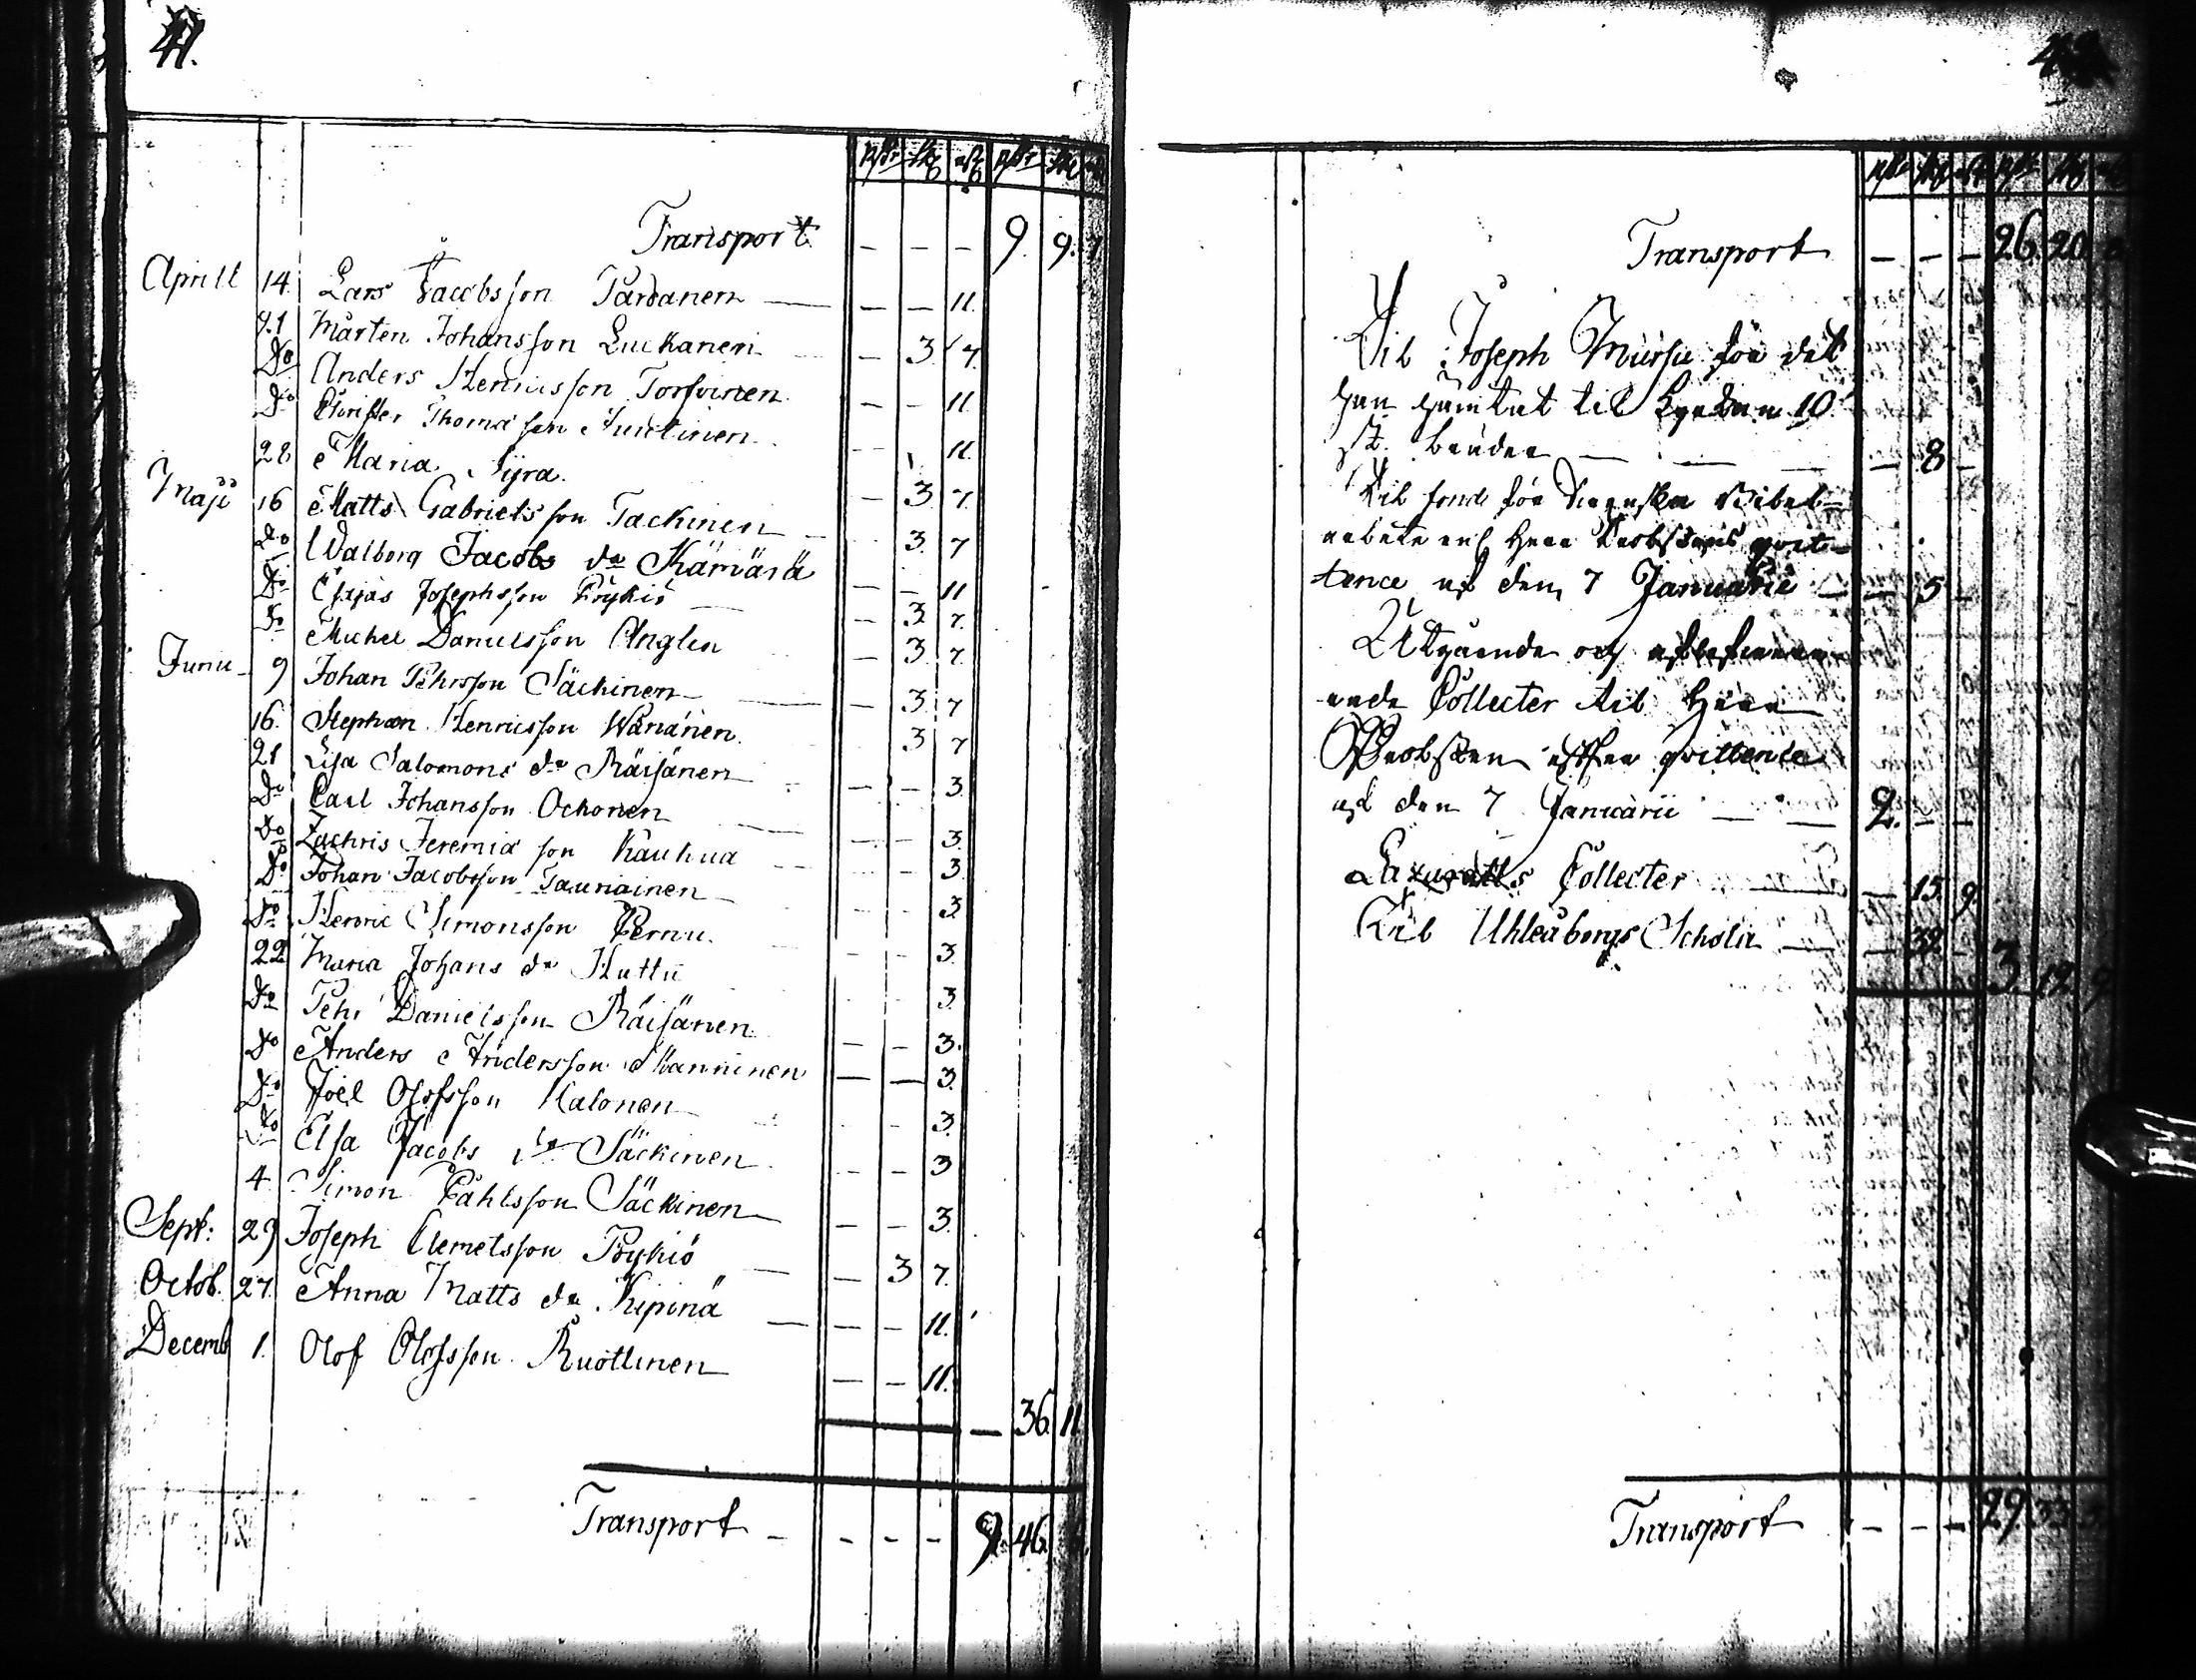 41.
Rdr skg rst Rdr skg
Transport – – – 9. 9. 7
Aprill 14. Lars Jacobsson Pardanen – – 11.
21 Mårten Johansson Luckanen – 3 7.
Do Anders Henricsson Torfvinen – – 11
Do Christer Thomasson Juntinen – – 11.
28 Maria Syra. – 3. 7.
Maji 16 Matts Gabrielsson Tackinen – 3. 7
Do Walborg Jacobs dr Kämärä – – 11
Do Esajas Josephsson Pöykiö – 3. 7.
Do Michel Danielsson Anglin – 3. 7.
Junii 9 Johan Pehrsson Säckinen – 3. 7
16. Stephan Henricsson Wänänen. 3. 7
21 Lisa Salomons dr Räisänen – – 3.
Do Carl Johansson Ockonen – – 3.
Do Zachris Jeremiæ son Kaukua – – 3.
Do Johan Jacobsson Tauriainen – – 3.
Do Henric Simonsson Pernu. – – 3.
22 Maria Johans dr Huttu – – 3.
Do Pehr Danielsson Räisänen – – 3.
Do Anders Andersson Manninen – – 3.
Do Joël Olofsson Halonen – – 3.
Do Elsa Jacobs dr Säckinen – – 3
4 Simon Påhlsson Säckinen – – 3.
Sept: 29 Joseph Clemetsson Pöykiö – 3 7.
Octob. 27. Anna Matts dr Kipinä – – 11.
Decemb 1. Olof Olofsson Ruottinen – – 11.
– 36. 11
Transport – – – – 9. 46.
Transport – – – 26. 20.
Til Joseph Mursu för det
han hämtat til Kyrkan 10
st. bräder – 8 –
Til fond för Svenska Bibel-
arbete enl Herr Probstens qvit-
tance af den 7 Januarii – 5 –
Utgående och
ande Collecter til Herr
Probsten efter qvittence
af den 7 Januarii 2. – –
Lazaretts Collecter – 15. 9.
Til Uhleåborgs Schola – 32. – 3. 12. 9
Transport – – – 29. 33.